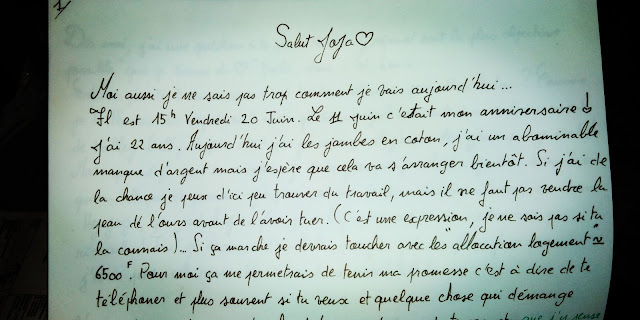 1
Salut JoJa♡
Moi aussi je ne sais pas trop comment je vais aujourd'hui...
Il est 15h Vendredi 20 Juin. Le 11 juin c'était mon anniversaire ↓
J'ai 22 ans. Aujourd'hui j'ai les jambes en coton, j'ai un abominable
manque d'argent mais j'espère que cela va s'arranger bientôt. Si j'ai de
la chance je peux d'ici peu trouver du travail, mais il ne faut pas vendre la
peau de l'ours avant de l'avoir tuer. (C'est une expression, je ne sais pas si tu
la connais)... Si ça marche je devrais toucher avec les "allocation logement" ≈
6500F. Pour moi ça me permettrais de tenir ma promesse c'est à dire de te
téléphoner et plus souvent si tu veux et quelque chose qui démange
que j'y pense